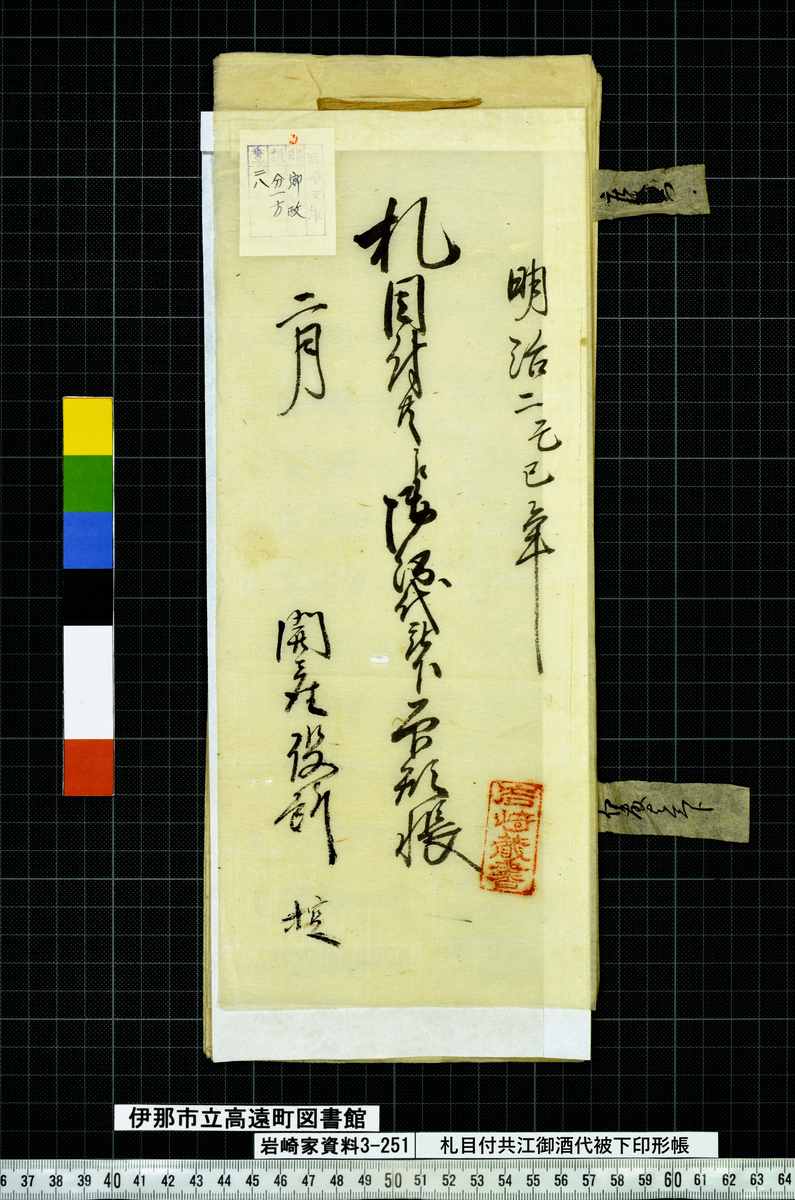 明治二己巳年
札目付共江御酒代被下印形帳
二月
開産役所
岩崎蔵書
郷政
分一方
二八
伊那市立高遠町図書館
岩崎家資料3-251
札目付共江御酒代被下印形帳
6 37 38 39 40 41 42 43 44 45 46 47 48 49 50 51 52 53 54 55 56 57 58 59 60 61 62 63 64